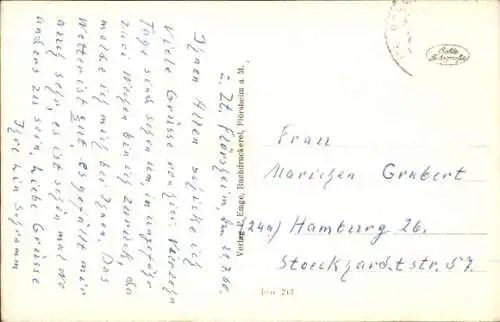 z. Zt. Flörsheim, den 21.7.60.
Ihnen Allen schicke ich
Viele Grüsse von hier. Nachdem
Tage sind schön um, in ungefähr
zwei Wochen bin ich zurück, da
melde ich mich bei Ihnen. Das
Wetter ist gut es gefällt mir
auch sehr, es ist schön mal wo
anders zu sein. Liebe Grüsse
Ihre
Verlag P. Emge, Buchdruckerei, Flörsheim a. M.
Echte Fotografie
Frau
Mariechen Grabert
(24a) Hamburg 26.
Stoeckhardtstr. 57